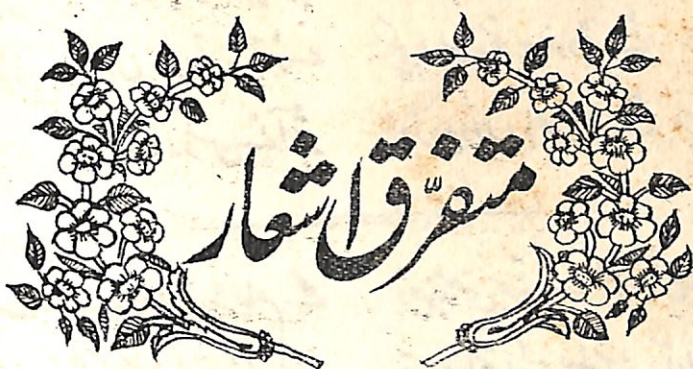 متفرّق اشعار